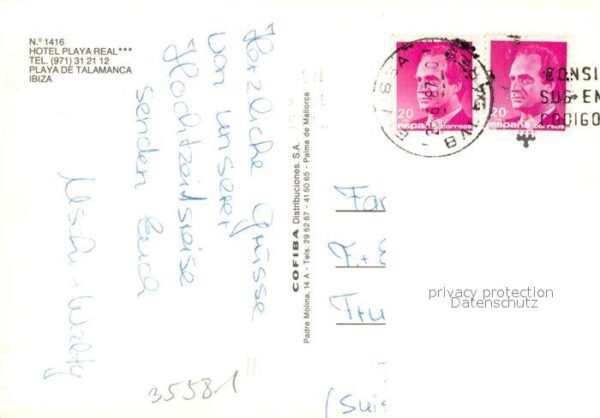 N.º 1416
HOTEL PLAYA REAL***
TEL. (971) 31 21 12
PLAYA DE TALAMANCA
IBIZA
Herzliche Grüsse
von unserer
Hochzeitsreise
senden Euch
Uschi + Walty
COFIBA Distribuciones, S.A.
Padre Molina, 14 A - Tels. 29 52 87 - 41 50 65 - Palma de Mallorca
20
españa correos
20
españa correos
CONSI
SUS EN
CODIGO
Fa
F. + E
Fru
(Suis
privacy protection
Datenschutz
35581